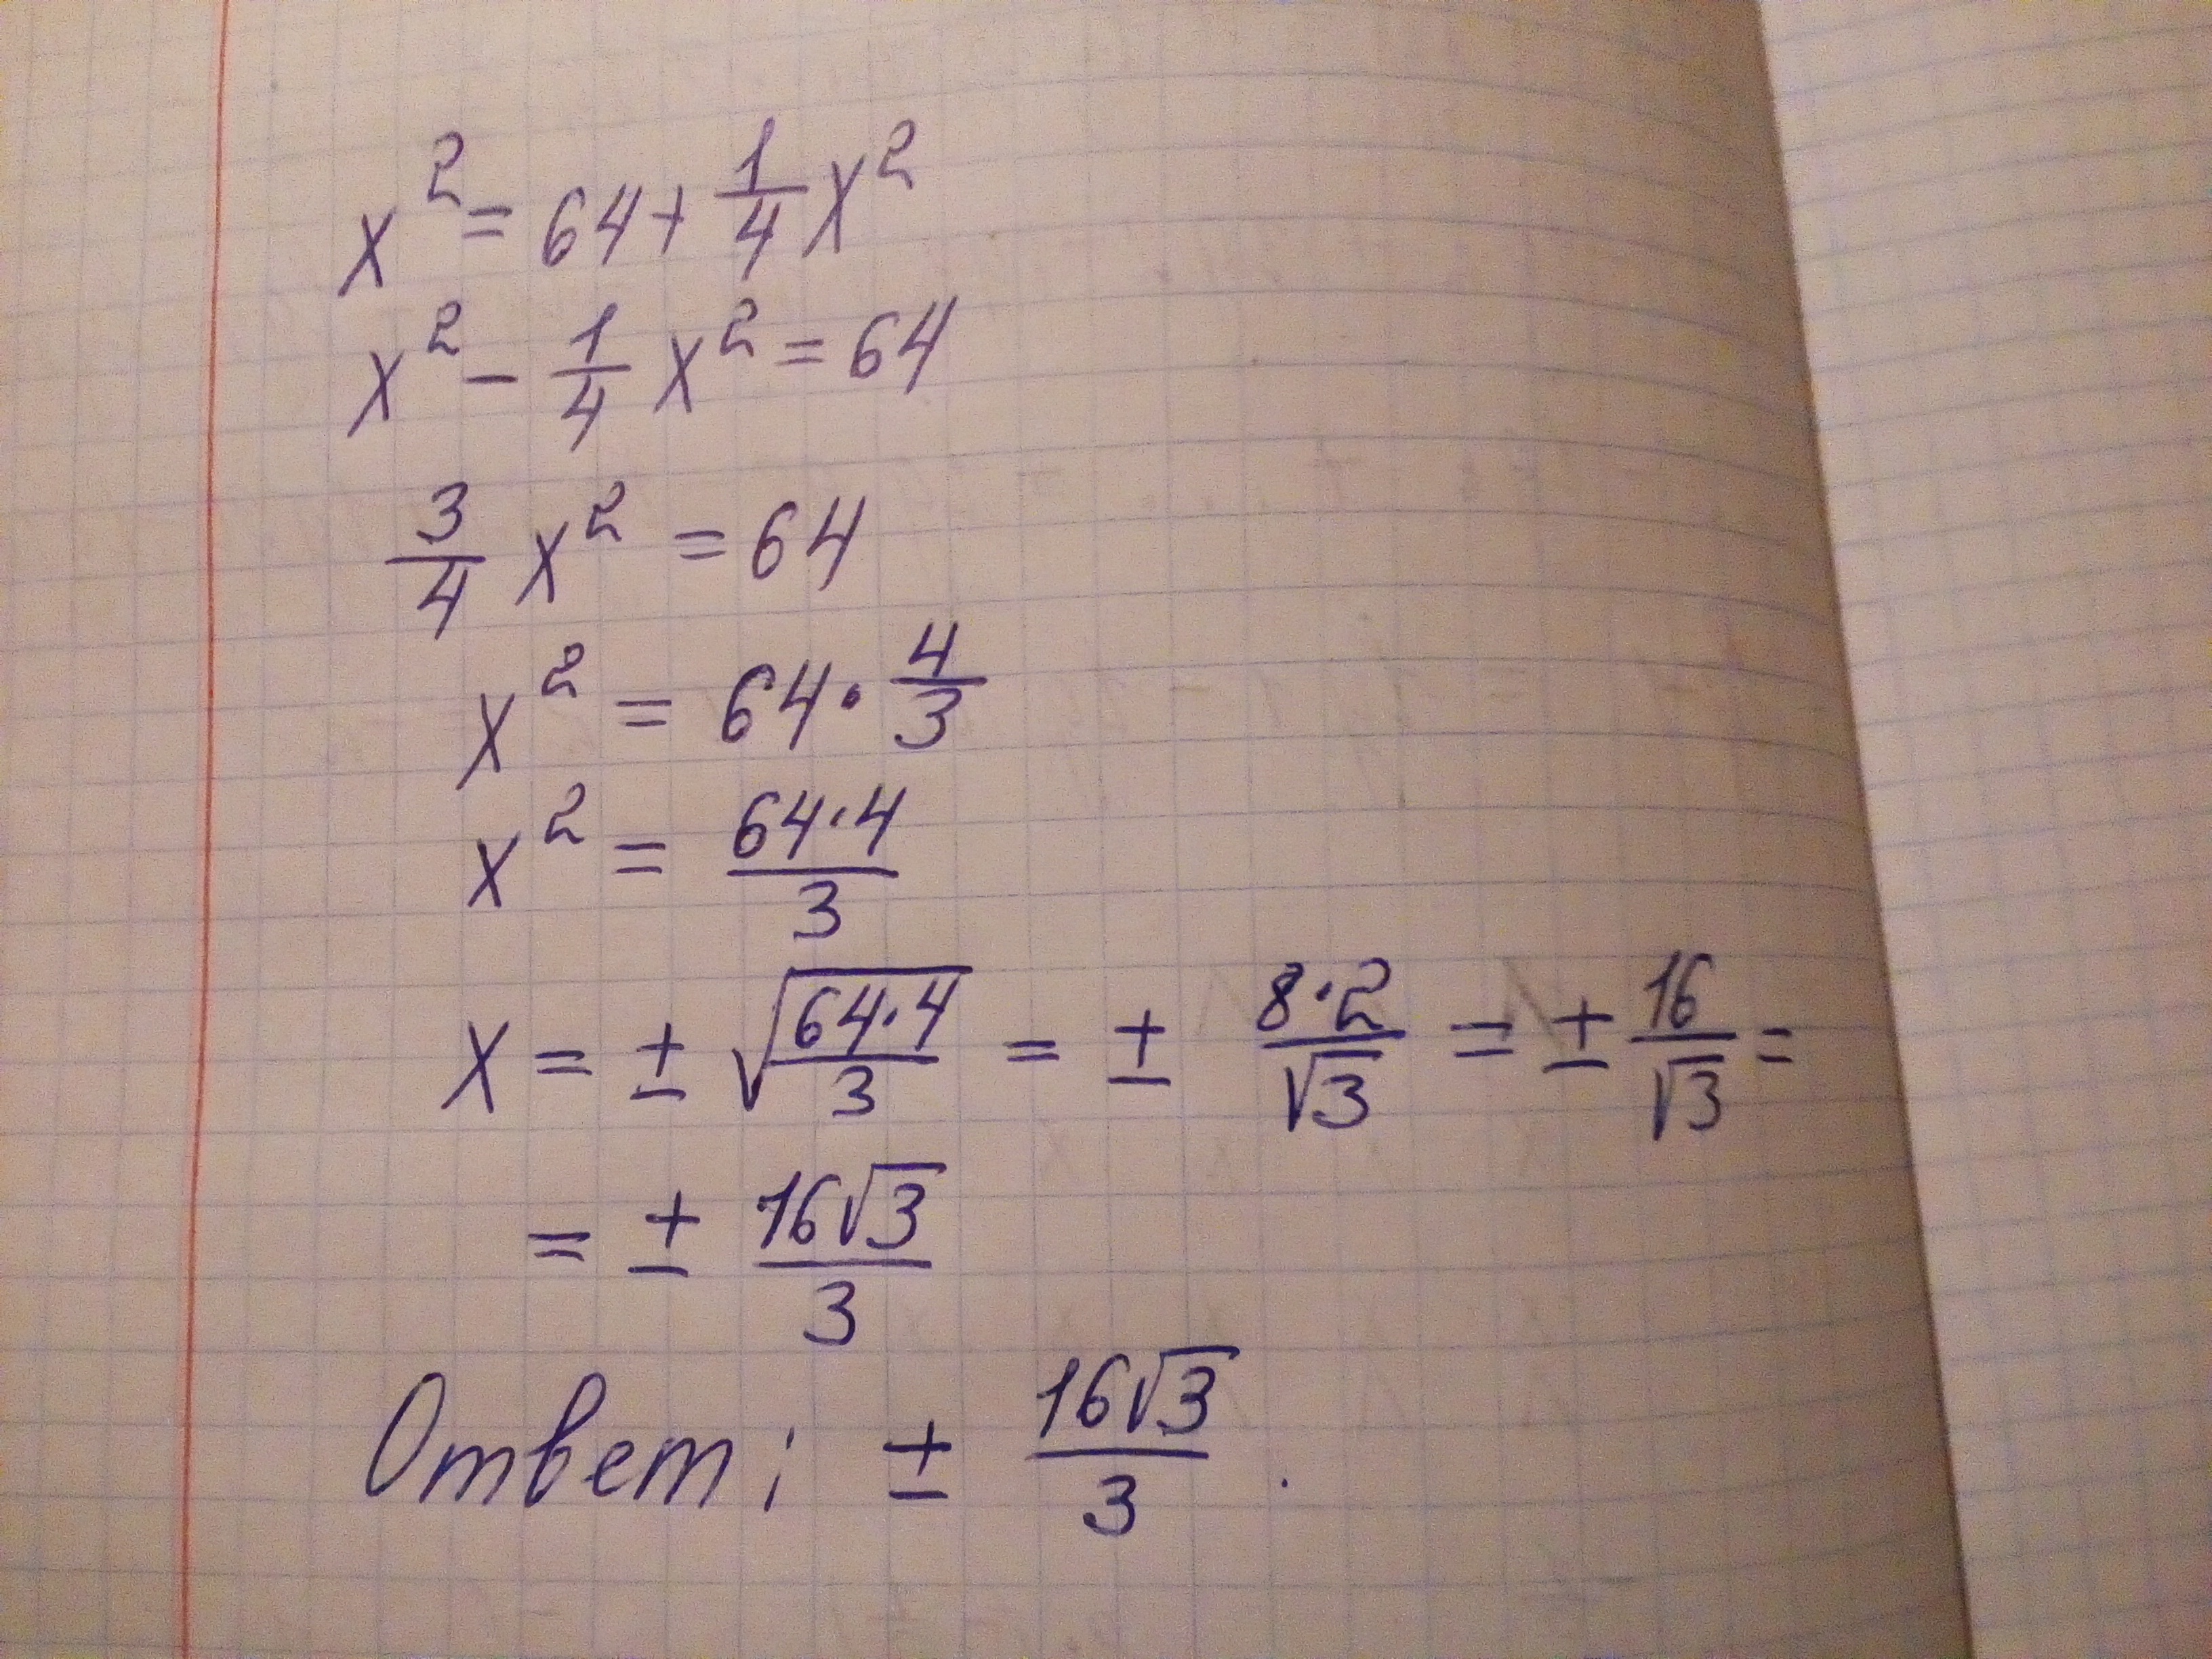 x² = 64 + 1/4 x²
x² - 1/4 x² = 64
3/4 x² = 64
x² = 64 · 4/3
x² = 64·4/3
x = ± √(64·4/3) = ± 8·2/√3 = ± 16/√3 =
= ± 16√3/3
Ответ: ± 16√3/3 .